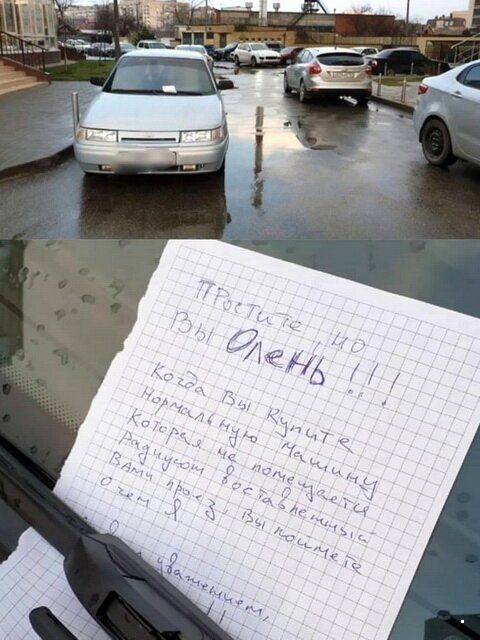 Простите, но
Вы Олень!!!
Когда Вы купите
нормальную машину
которая не помещается
радиусом в оставленный
Вами проезд, Вы поймете
о чем я
уважением,